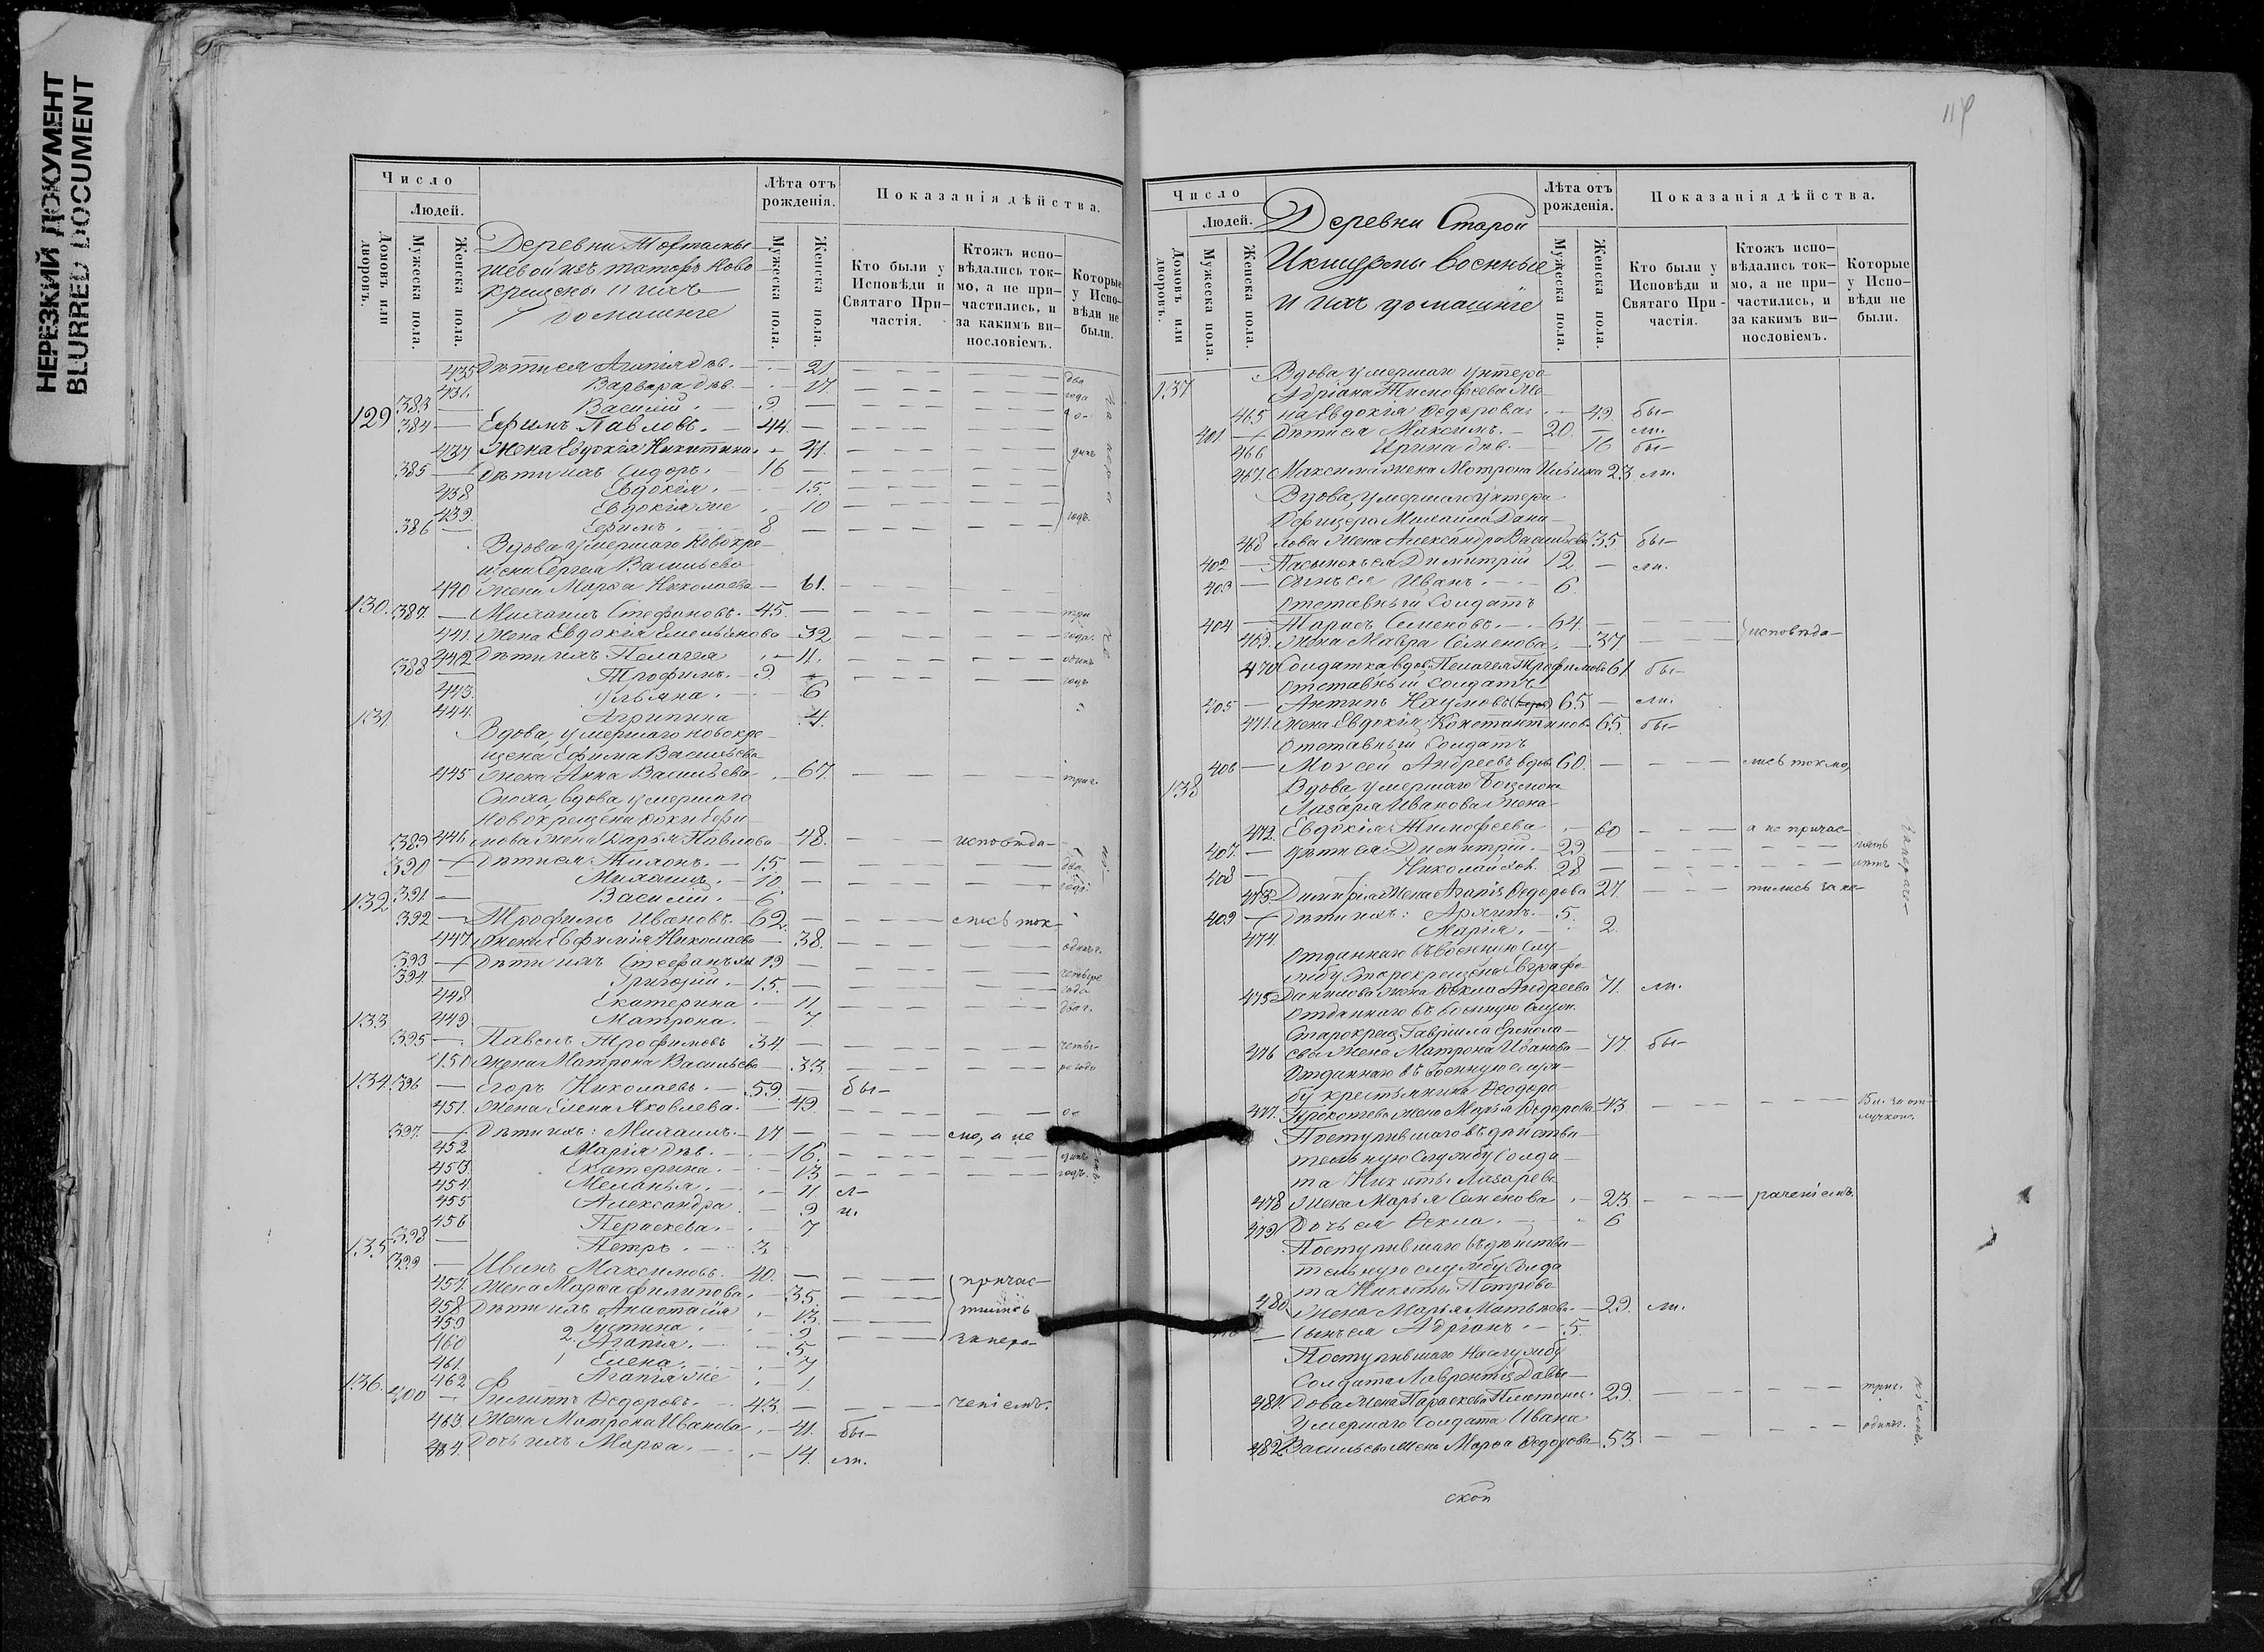 НЕРЕЗКИЙ ДОКУМЕНТ
BLURRED DOCUMENT
Число
Людей.
Домовъ или дворовъ.
Мужеска пола.
Женска пола.
Лѣта отъ рожденія.
Мужеска пола.
Женска пола.
Показанія дѣйства.
Кто были у Исповѣди и Святаго Причастія.
Ктожъ исповѣдались токмо, а не причастились, и за какимъ винословіемъ.
Которые у Исповѣди не были.
Деревни
шевой изъ татаръ ново
крещены и ихъ
домашніе
435 Дѣти ея Агапія дѣв. 21
436 Варвара дѣв. 17 два года
383 Василій. 9
129 384 Ефимъ Павловъ. 44
437 Жена Евдокія Никитина 41
385 Дѣти ихъ Сидоръ. 16
438 Евдокія. 15
439 Евдокія же 10
386 Ефимъ. 8 годъ
Вдова умершаго Новокре-
щена Сергея Васильева
440 жена Марѳа Николаева 61
130. 387. Михаилъ Стефановъ. 45. три
441 Жена Евдокія Емельянова 32 года.
442 Дѣти ихъ Пелагея 11. одинъ
388 Трофимъ. 9 годъ
443 Ульяна. 6
444. Агрипина 4.
131
Вдова умершаго новокре-
щена Ефима Васильева
445 жена Анна Васильева 67. три г.
Сноха, вдова умершаго
новокрещена Ефи-
446 мова жена Дарья Павлова 48. исповѣда-
389 Дѣти ея Тихонъ. 15 два
390 Михаилъ. 10 года
391 Василій. 6
132 392 Трофимъ Ивановъ. 62. лись ток-
447 жена Евфимія Николаева 38. одинъ г.
393 Дѣти ихъ Стефанъ 19 четыре
394 Григорій. 15. года
448 Екатерина 11 два г.
449 Матрона. 7
133 395 Павелъ Трофимовъ 34. четы-
450 жена Матрона Васильева 33 ре года
134. 396 Егоръ Николаевъ. 59 бы-
451. жена Елена Яковлева. 49.
397. Дѣти ихъ: Михаилъ. 17 мо, а не
452 Марія дѣв. 16. одинъ
453 Екатерина. 13 годъ.
454 Меланья. 11. л-
455 Александра. 9 и.
456 Параскева. 7
398 Петръ. 3
135 399 Иванъ Максимовъ. 40. причас-
457 Жена Марѳа Филипова. 35 тились
458 Дѣти ихъ Анастасія 13.
459 Устина. 9
460 2. Агапія. 5 за нера-
461. 1 Елена. 7
462 Агапія же 1.
136. 400 Филиппъ Ѳедоровъ. 43. ченіемъ.
463 Жена Матрона Иванова 41. бы-
464. Дочь ихъ Марѳа. 14. ли.
Число
Людей.
Домовъ или дворовъ.
Мужеска пола.
Женска пола.
Деревни Старой
Икшурмы военные
и ихъ домашніе
Лѣта отъ рожденія.
Мужеска пола.
Женска пола.
Показанія дѣйства.
Кто были у Исповѣди и Святаго Причастія.
Ктожъ исповѣдались токмо, а не причастились, и за какимъ винословіемъ.
Которые у Исповѣди не были.
137
Вдова умершаго унтера
Адріана Тимофеева же-
465 на Евдокія Ѳедорова 49. бы-
401. Дѣти ея Максимъ. 20. ли.
466 Ирина дѣв. 16 бы-
467. Максима жена Мотрона Ильина 23 ли.
Вдова, умершаго унтера
Офицера Михаила Дани-
468 лова жена Александра Васильева 35. бы-
402 Пасынокъ ея Димитрій 12 ли.
403 Сынъ ея Иванъ. 6.
Отставный солдатъ
404 Тарасъ Семеновъ. 64.
469. Жена Мавра Семенова 37 исповѣда-
470 Солдатка, вдов. Пелагея Трофимова 61 бы-
Отставный солдатъ
405 Антипъ Наумовъ 65 ли.
471. Жена Евдокія Константинова 65. бы-
Отставный Солдатъ
406 Моѵсей Андреевъ вдов. 60. лись токмо,
138
Вдова, умершаго
Лазаря Иванова жена
472. Евдокія Тимофеева 60 а не причас-
407. дѣти ея Димитрій. 29 пять
408 Николай хол. 28 лѣтъ
473. Димитрія жена Агапія Ѳедорова 27. тились за не-
409 Дѣти ихъ: 5.
474. Марія. 2.
Отданнаго въ военную слу-
жбу Старокрещена Евграфа
475 Данилова жена Ѳекла Андреева 71. ли.
Отданнаго въ военную служ.
Старокрещ. Гавріила Ермола-
476 ева жена Матрона Иванова 77. бы-
Отданнаго въ военную служ-
бу крестьянина Ѳеодора
477. жена Марья Ѳедорова 43. 15 л. за от-
лучкою.
Поступившаго въ дѣйстви-
тельную службу Солда-
та Никиты Лазарева
478 жена Марья Семенова 23. раченіемъ.
479 Дочь ея Ѳекла. 6
Поступившаго въ дѣйстви-
тельную службу Солда
та Никиты Петрова
480 жена Марья Матвѣева. 29. ли.
Сынъ ея Адріанъ. 5.
Поступившаго на службу
Солдата Лаврентія Давы-
481. дова жена Параскева Платонова. 29. три г.
Умершаго Солдата Ивана
482. Васильева жена Марѳа Ѳедорова 53 одинъ г.
ской